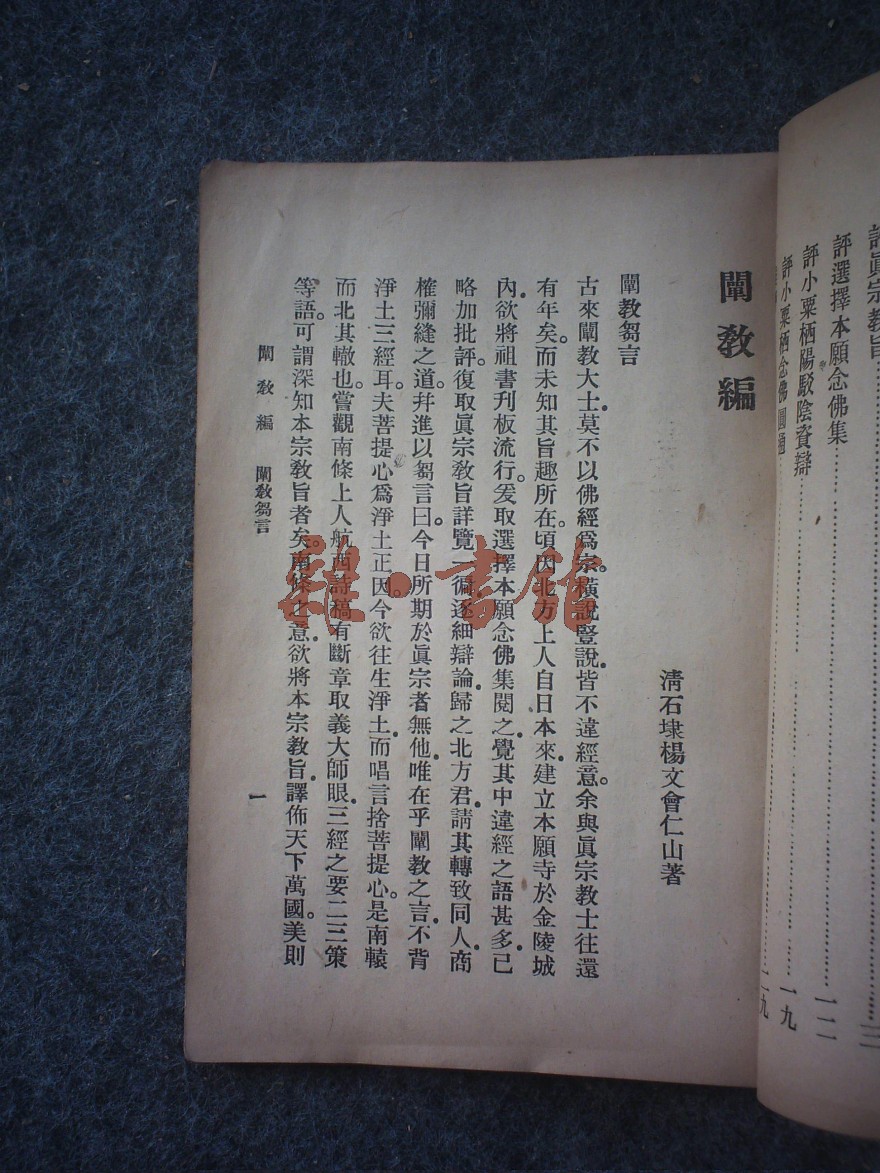 評眞宗教旨……三
評選擇本願念佛集……一二
評小粟栖陽駁陰資辯……一九
評小粟栖念佛圓通……二九
闡教編
清石埭楊文會仁山著
闡教芻言
古來闡教大士莫不以佛經爲宗。橫說豎說皆不違經意。余與眞宗教士往還
有年矣。而未知其旨趣所在。頃因北方上人自日本來建立本願寺於金陵城
內。欲將祖書刊板流行。爰取選擇本願念佛集閱之。覺其中違經之語甚多。已
略加批評。復取眞宗教旨詳覽一徧。逐細辯論。歸之北方君。請其轉致同人。商
榷彌縫之道。幷進以芻言曰。今日所期於眞宗者無他。唯在乎闡教之言。不背
淨土三經耳。夫菩提心爲淨土正因。今欲往生淨土。而唱言捨菩提心。是南轅
而北其轍也。嘗觀南條上人航西詩稿有斷章取義大師眼。三經之要二三策
等語。可謂深知本宗教旨者矣。南條之意。欲將本宗教旨。譯佈天下萬國。美則
闡教編 闡教芻言
一
羅·書館